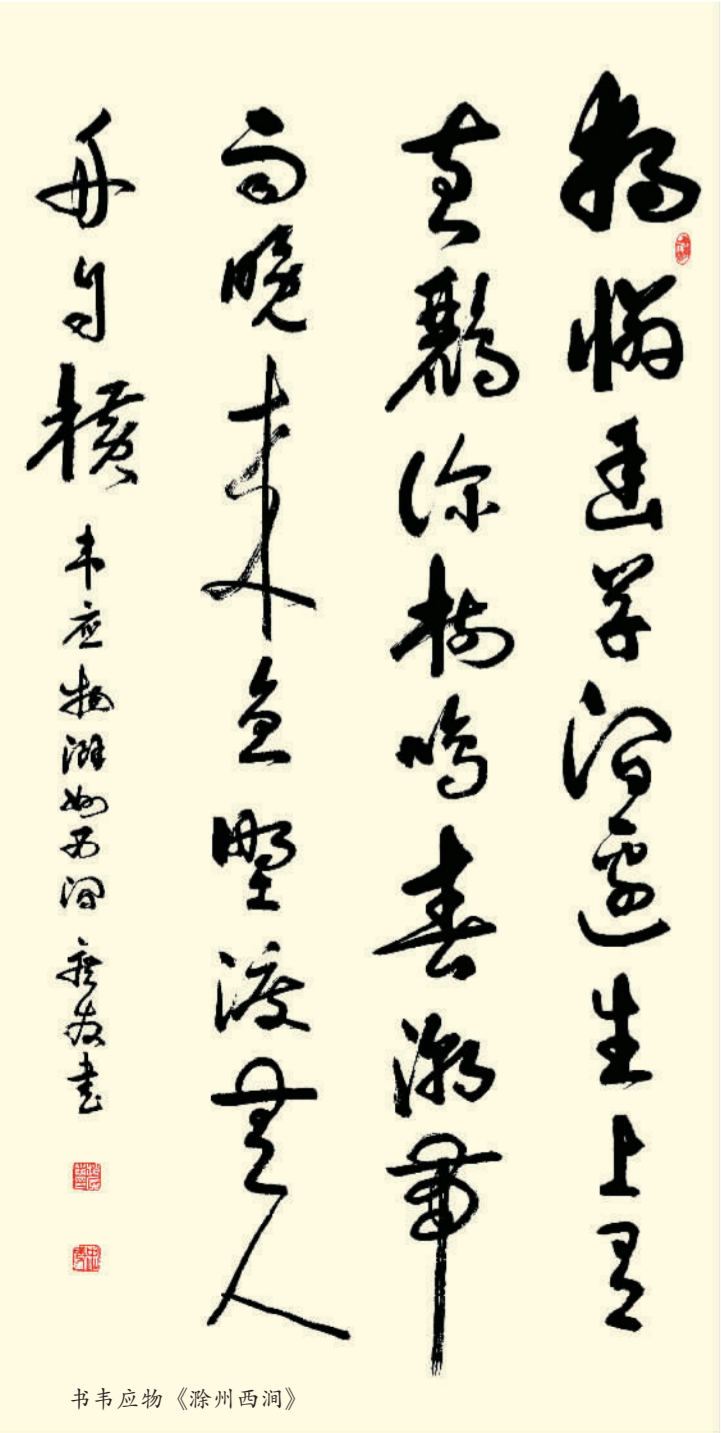 獨憐幽草澗邊生上有
黃鸝深樹鳴春潮帶
雨晚来急野渡無人
舟自橫
韦应物滁州西涧 書
书韦应物《滁州西涧》